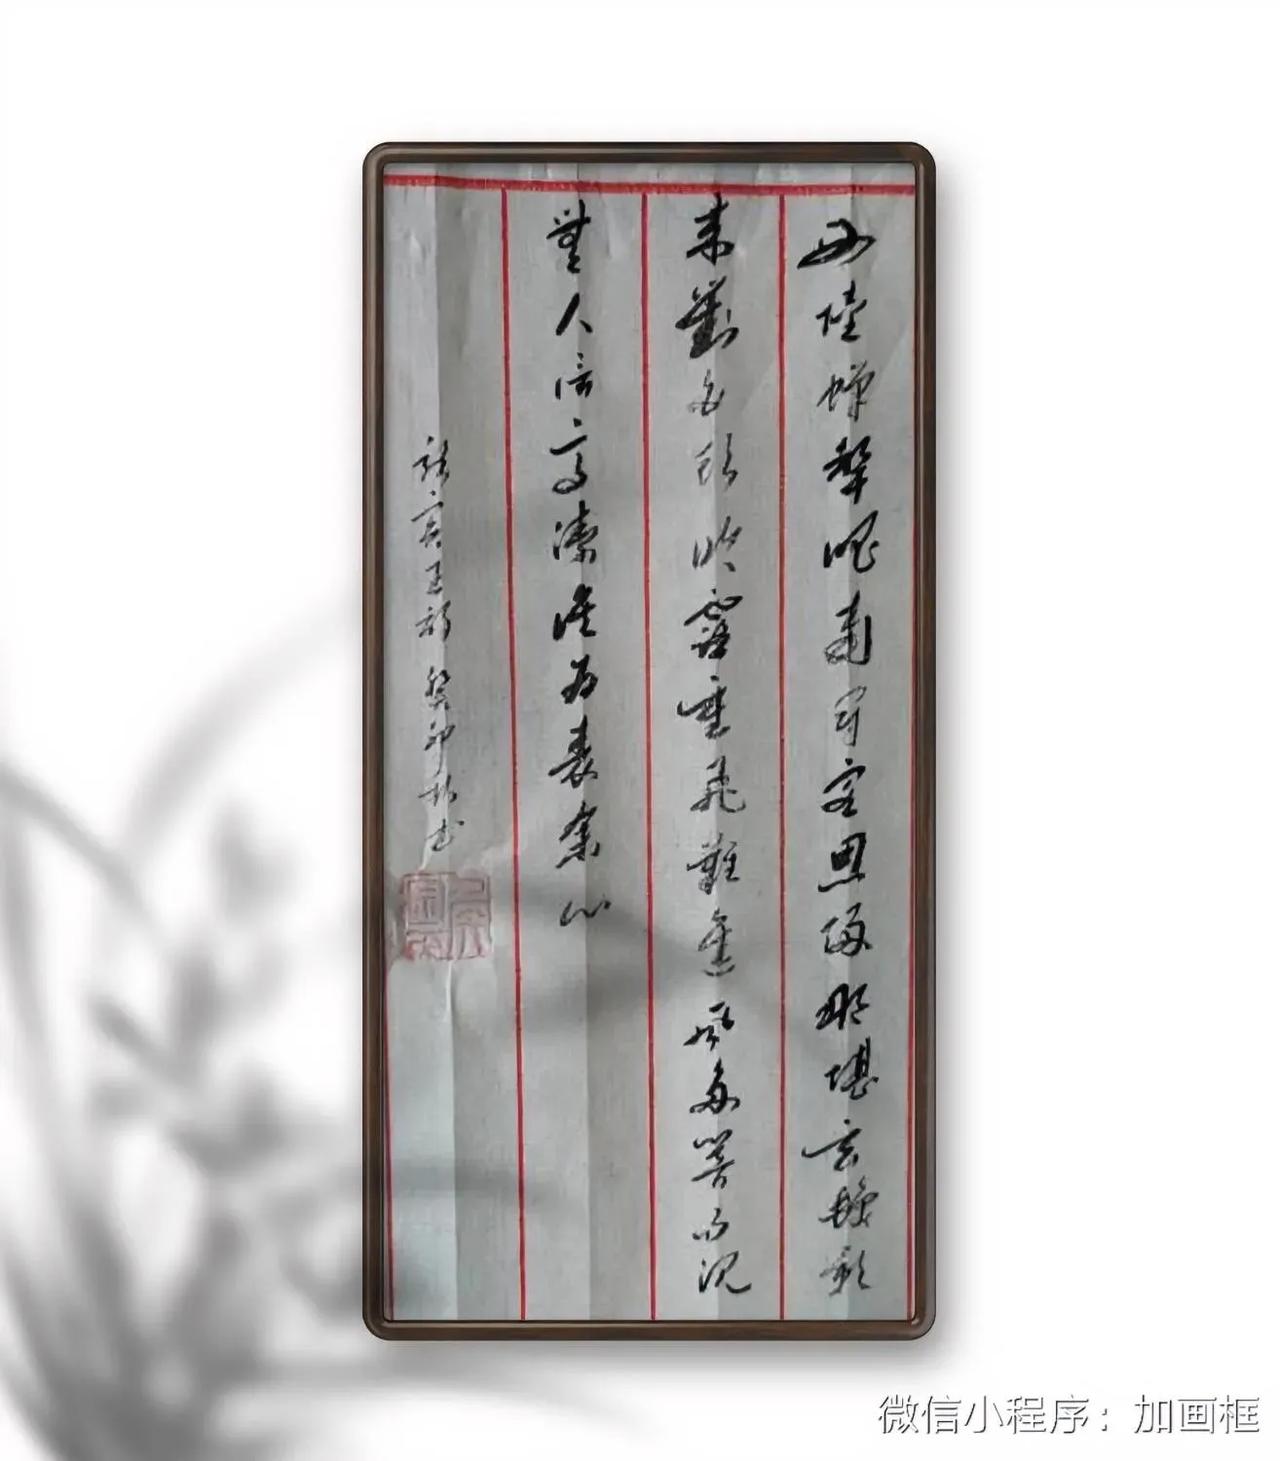 西陸蟬聲唱南冠客思侵那堪玄鬢影
來對白頭吟露重飛難進風多響易沉
無人信高潔誰為表余心
駱賓王詩癸卯书
微信小程序：加画框